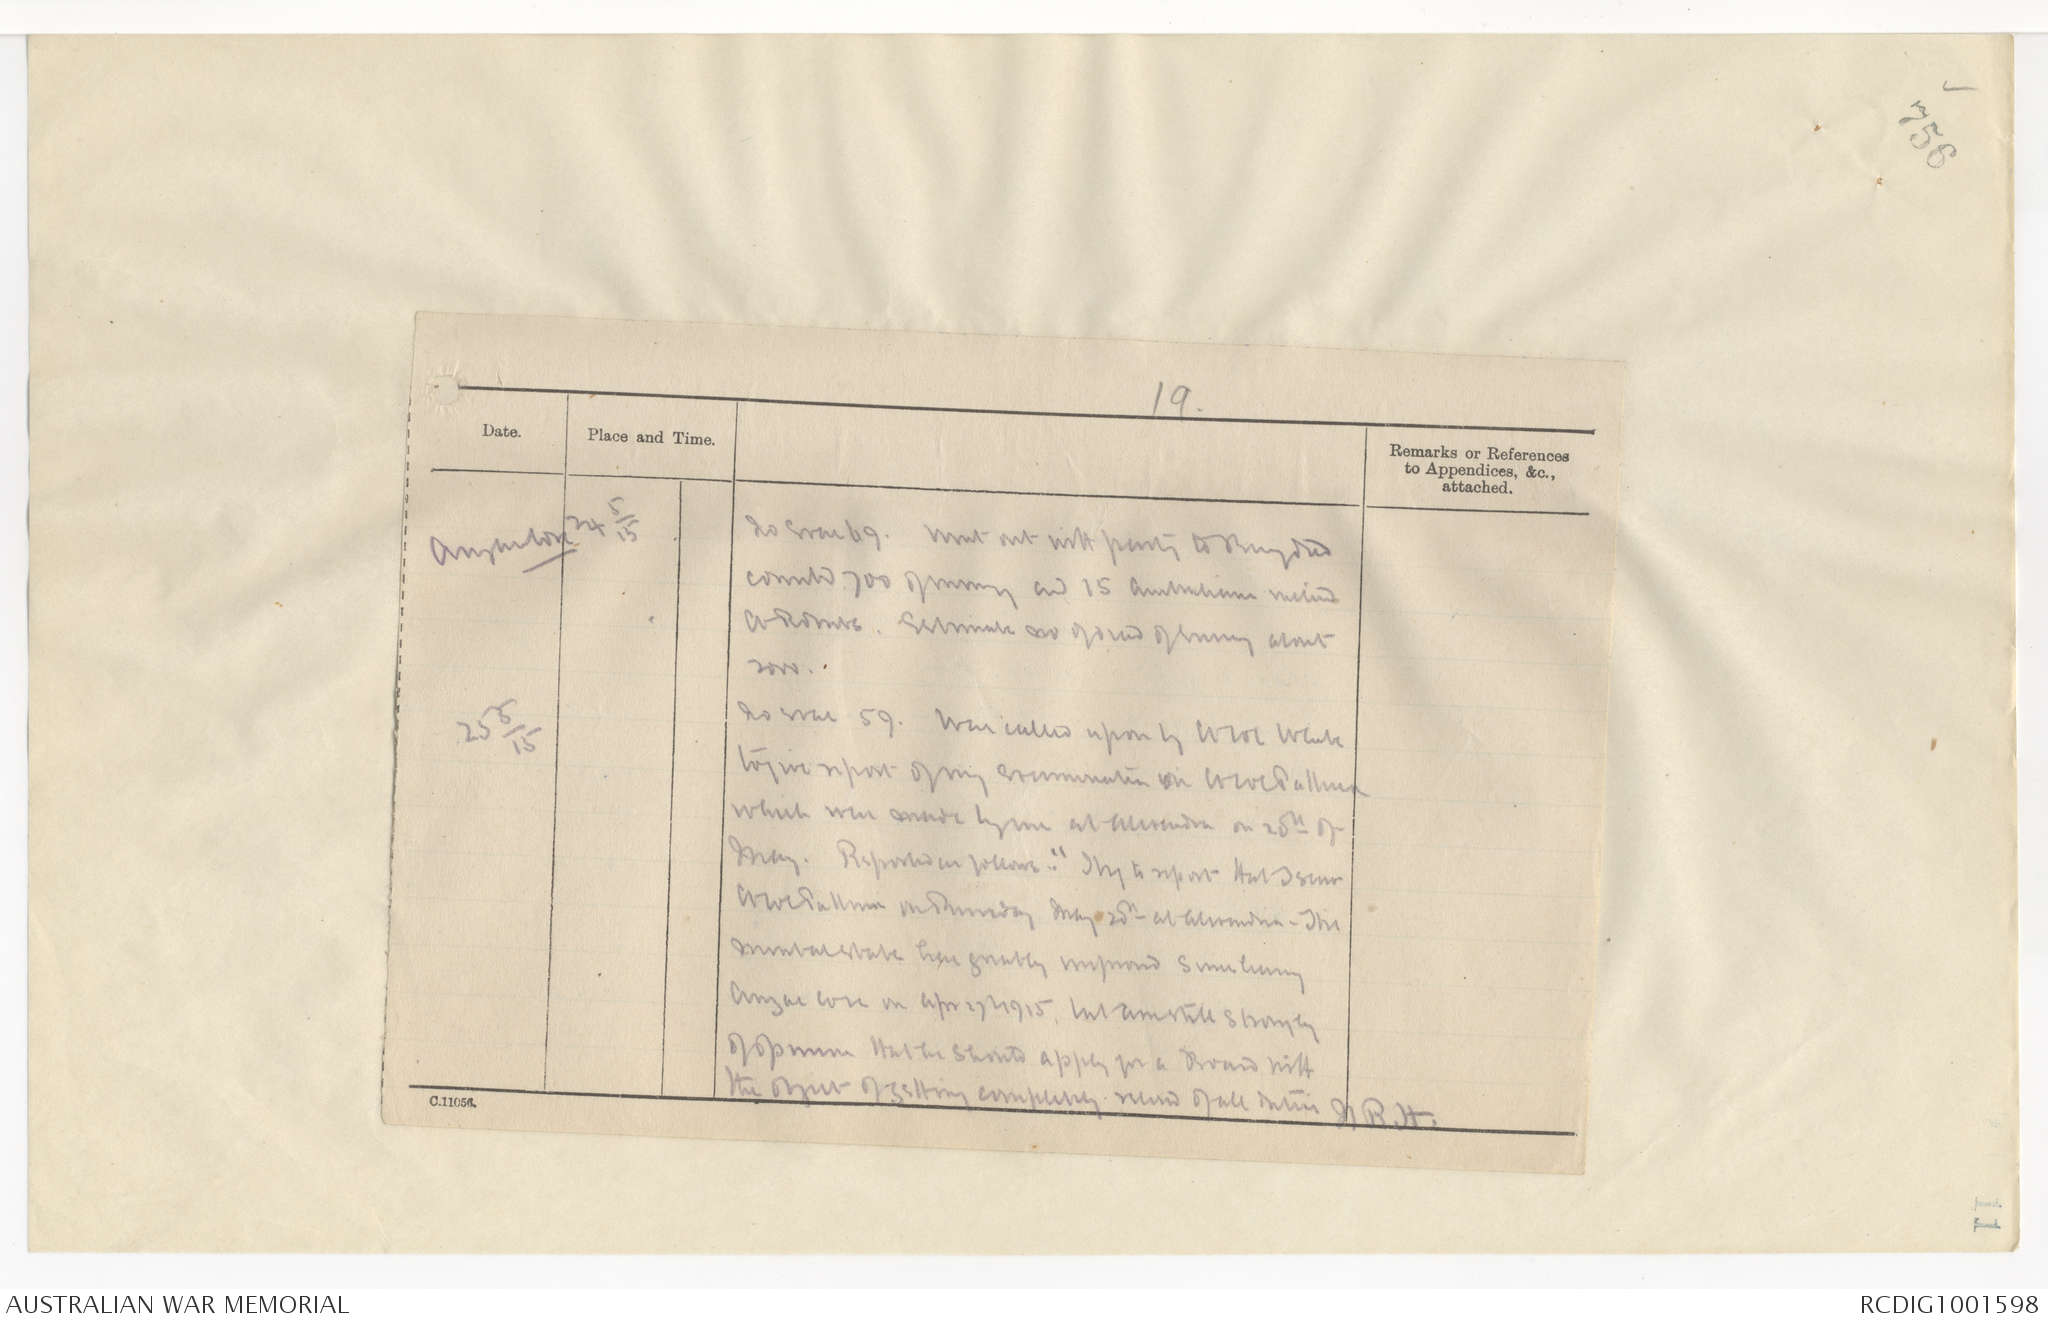 756
19.
Date.
Place and Time.
Remarks or References
to Appendices, &c.,
attached.
Anzac Cove 24 5/15
No Evac 69. Went out with party to Bury dead
counted 700 of enemy and 15 Australians
Estimate no of dead of enemy about
2000.
25 5/15
No evac 59. Was called upon by Col White
to give report of my examination
which was made by me at Alexandria on 20th of
May. Reported as follows:- "I beg to report that I saw
on Thursday May 20th at Alexandria - His
mental state has greatly improved since leaving
Anzac Cove on Apr 27th 1915, but am still strongly
of opinion that he should apply for a Board with
the object of getting completely relieved of all duties
C.11056.
AUSTRALIAN WAR MEMORIAL
RCDIG1001598